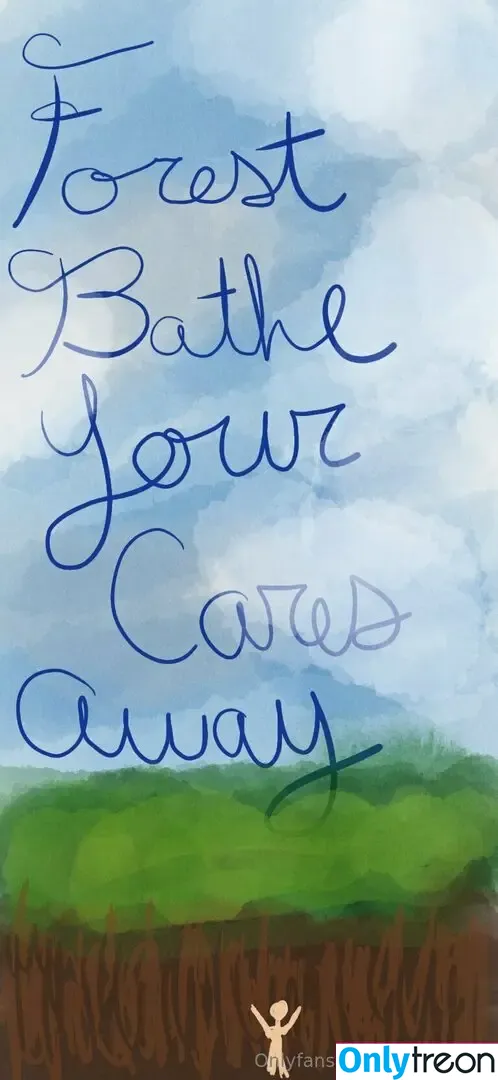 Forest
Bathe
Your
Cares
Away
Onlyfans
Onlytreon